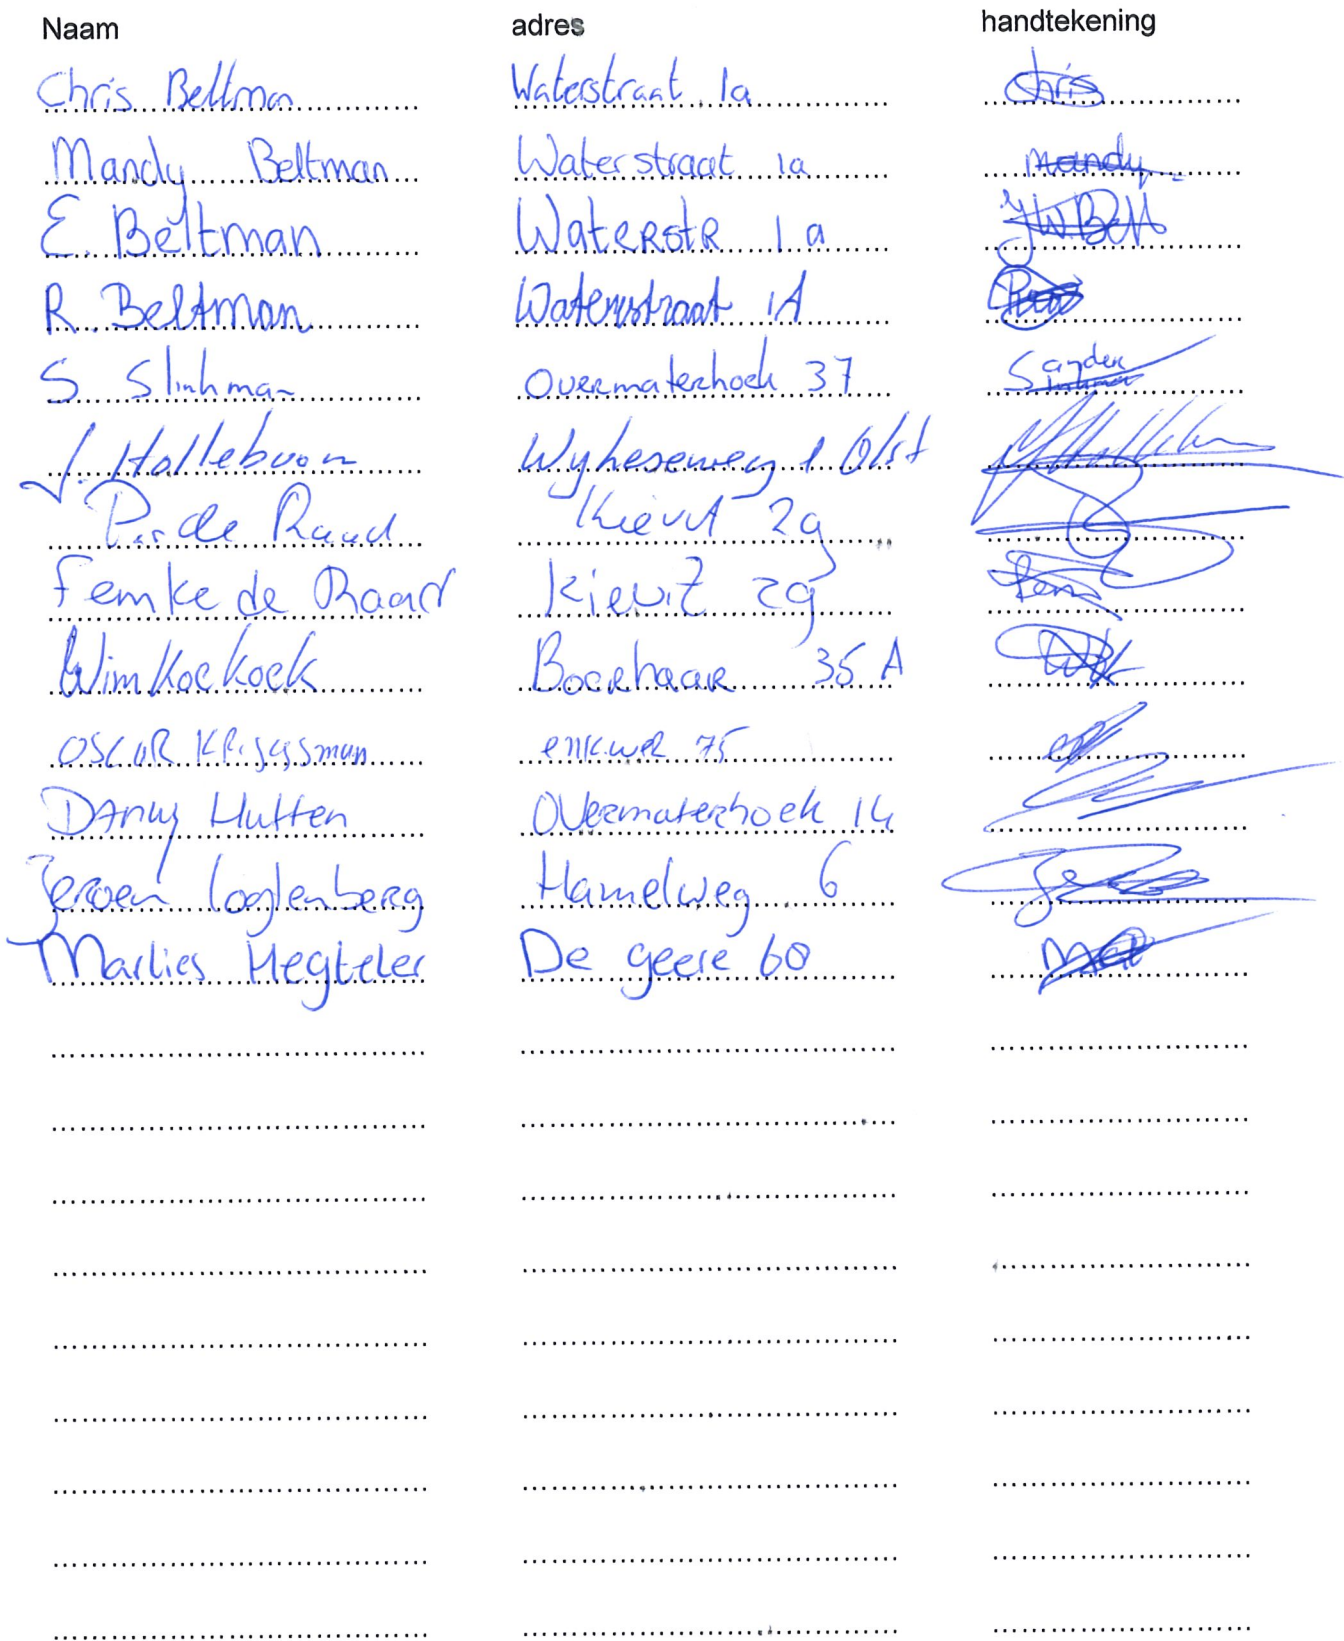 Naam adres handtekening
Chris Beltman Waterstraat 1a Chris
Mandy Beltman Waterstraat 1a Mandy
E. Beltman Waterstr 1a
R. Beltman Waterstraat 1A
S Slinkman Overmaterhoek 37 Sander
J. Holleboom Wijheseweg 1 Olst
de Raad Kievit 2g
Femke de Raad Kievit 2g Fem
Wim Koekoek Boerhaar 35 A
OSCAR Krijgsman enkwer 75
Danny Hutten Overmaterhoek 14
Jeroen Hamelweg 6
Marlies Hegteler De geere 60